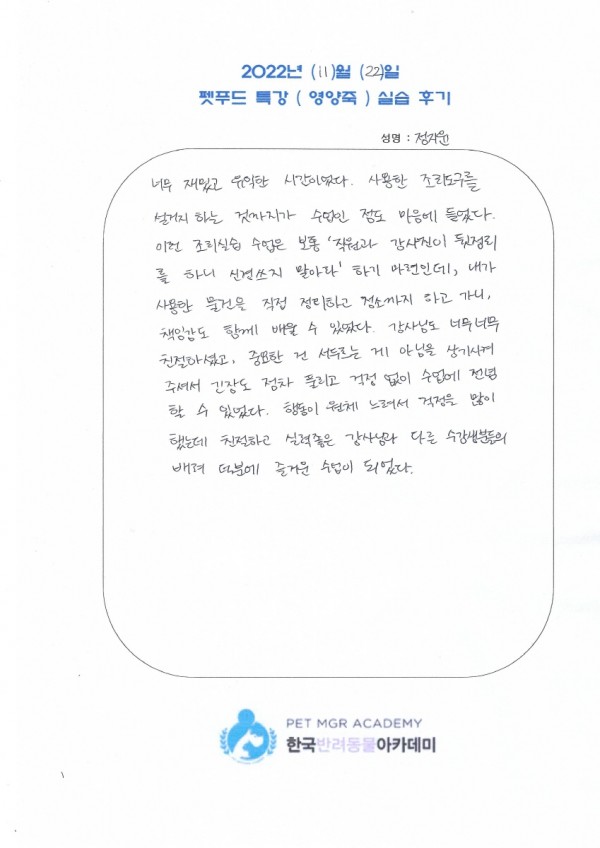 2022년 (11)월 (22)일
펫푸드 특강 ( 영양죽 ) 실습 후기
성명 : 정지원
너무 재밌고 유익한 시간이었다. 사용한 조리도구를
설거지 하는 것까지가 수업인 점도 마음에 들었다.
이런 조리실습 수업은 보통 '직원과 강사진이 뒷정리
를 하니 신경쓰지 말아라' 하기 마련인데, 내가
사용한 물건을 직접 정리하고 청소까지 하고 가니,
책임감도 함께 배울 수 있었다. 강사님도 너무너무
친절하셨고, 중요한 건 서두르는 게 아님을 상기시켜
주셔서 긴장도 점차 풀리고 걱정 없이 수업에 전념
할 수 있었다. 행동이 원체 느려서 걱정을 많이
했는데 친절하고 실력좋은 강사님과 다른 수강생분들의
배려 덕분에 즐거운 수업이 되었다.
PET MGR ACADEMY
한국반려동물아카데미